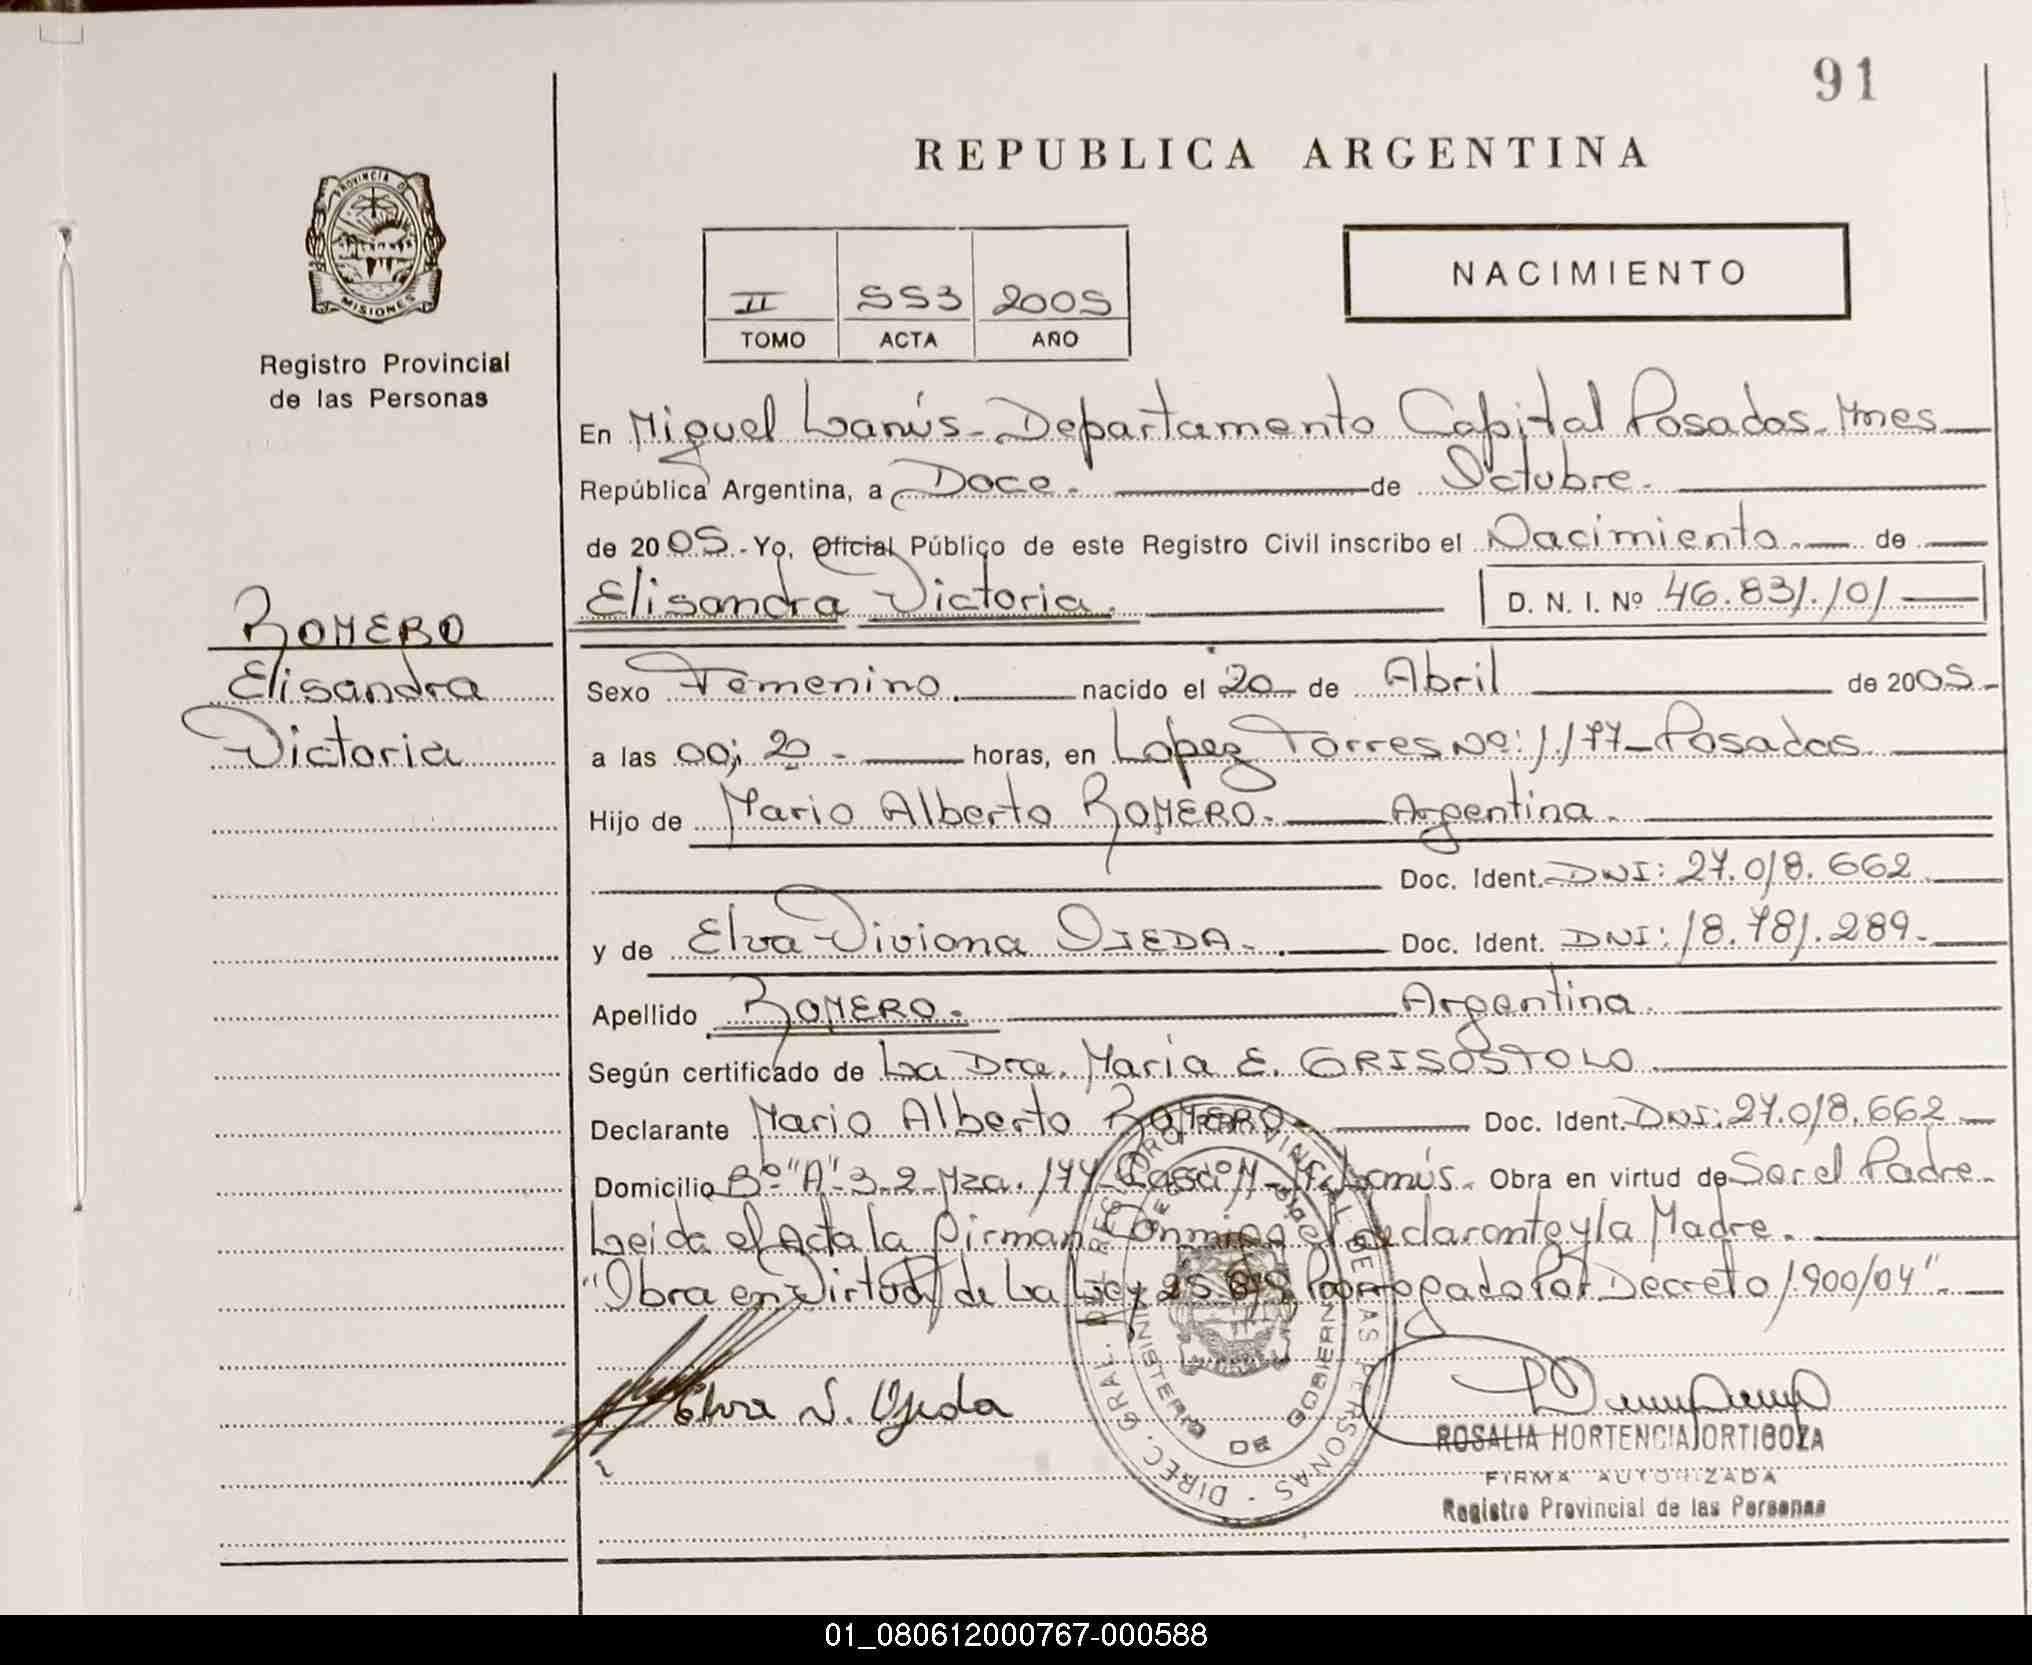 91
REPUBLICA ARGENTINA
PROVINCIA DE MISIONES
Registro Provincial
de las Personas
II 553 2005
TOMO ACTA AÑO
NACIMIENTO
En Miguel Lanús - Departamento Capital Posadas - Mnes
República Argentina, a Doce - de Octubre -
de 2005 - Yo, Oficial Público de este Registro Civil inscribo el Nacimiento de
Elisandra Victoria. D. N. I. Nº 46.831.101
ROMERO
Elisandra
Victoria
Sexo Femenino. nacido el 20 de Abril de 2005 -
a las 00; 20 - horas, en Lopez Torres Nº: 1.177 - Posadas
Hijo de Mario Alberto ROMERO - Argentina.
Doc. Ident. DNI: 27.018.662
y de Elva Viviana OJEDA - Doc. Ident. DNI: 18.781.289 -
Apellido ROMERO. Argentina.
Según certificado de La Dra. María E. GRISOSTOLO
Declarante Mario Alberto ROMERO - Doc. Ident. DNI: 27.018.662
Domicilio Bº "A"-3-2-Mza. 177 - Lanús. Obra en virtud de Ser el Padre -
Leida el Acta la firman Conmigo el declarante y la Madre.
"Obra en Virtud de La Ley 25.819 Prorrogado Por Decreto 1.900/04".
Elva V. Ojeda
DIREC. GRAL. DEL REGISTRO PROVINCIAL DE LAS PERSONAS -
MINISTERIO DE GOBIERNO
ROSALIA HORTENCIA ORTIGOZA
FIRMA AUTORIZADA
Registro Provincial de las Personas
01_080612000767-000588